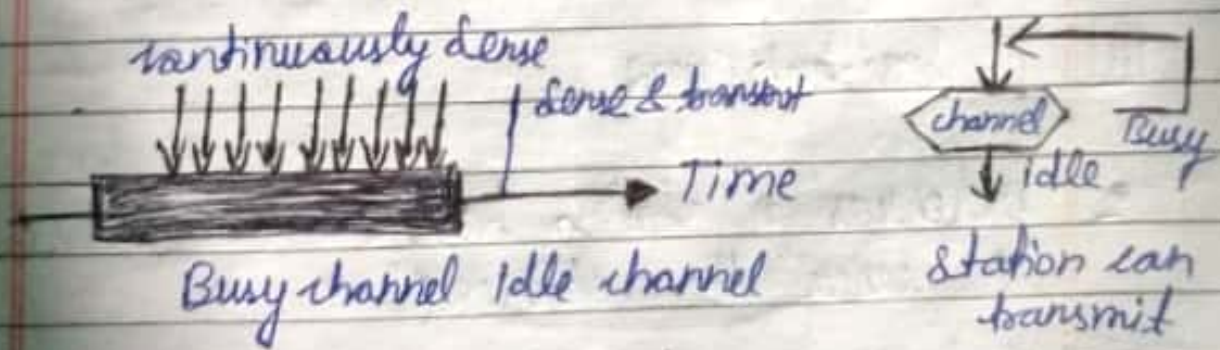 continuously sense
sense & transmit
Time
Busy channel Idle channel
channel
Busy
idle
Station can
transmit